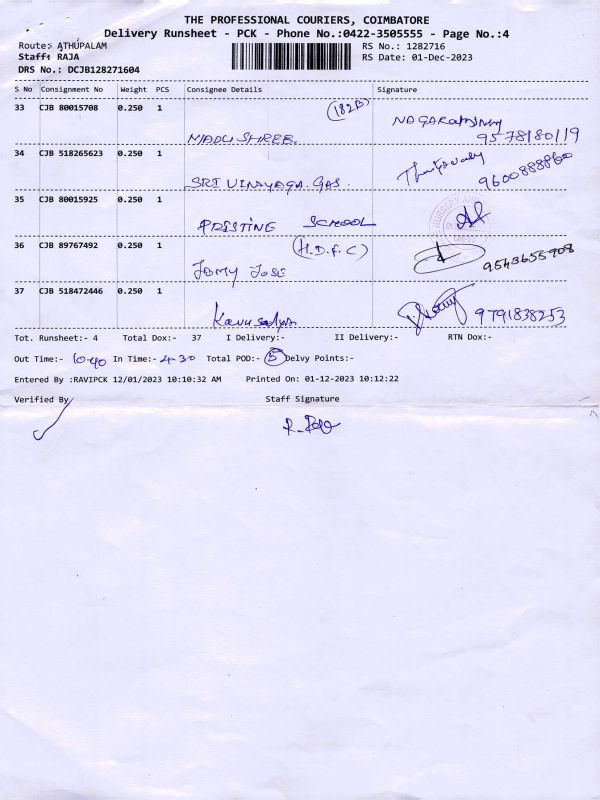 THE PROFESSIONAL COURIERS, COIMBATORE
Delivery Runsheet - PCK - Phone No.:0422-3505555 - Page No.:4
Route: ATHUPALAM RS No.: 1282716
Staff: RAJA RS Date: 01-Dec-2023
DRS No.: DCJB128271604
S No Consignment No Weight PCS Consignee Details Signature
33 CJB 80015708 0.250 1 (182B)
MADU SHREE. 9578180119
34 CJB 518265623 0.250 1
SRI VINAYAGA GAS. 9600888860
35 CJB 80015925 0.250 1
PRISTINE SCHOOL
36 CJB 89767492 0.250 1 (H.D.F.C) 9543655908
JOMY JOSE
37 CJB 518472446 0.250 1
Kavusalya 9791838253
Tot. Runsheet:- 4 Total Dox:- 37 I Delivery:- II Delivery:- RTN Dox:-
Out Time:- 10-40 In Time:- 4-30 Total POD:- 5 Delvy Points:-
Entered By :RAVIPCK 12/01/2023 10:10:32 AM Printed On: 01-12-2023 10:12:22
Verified By Staff Signature